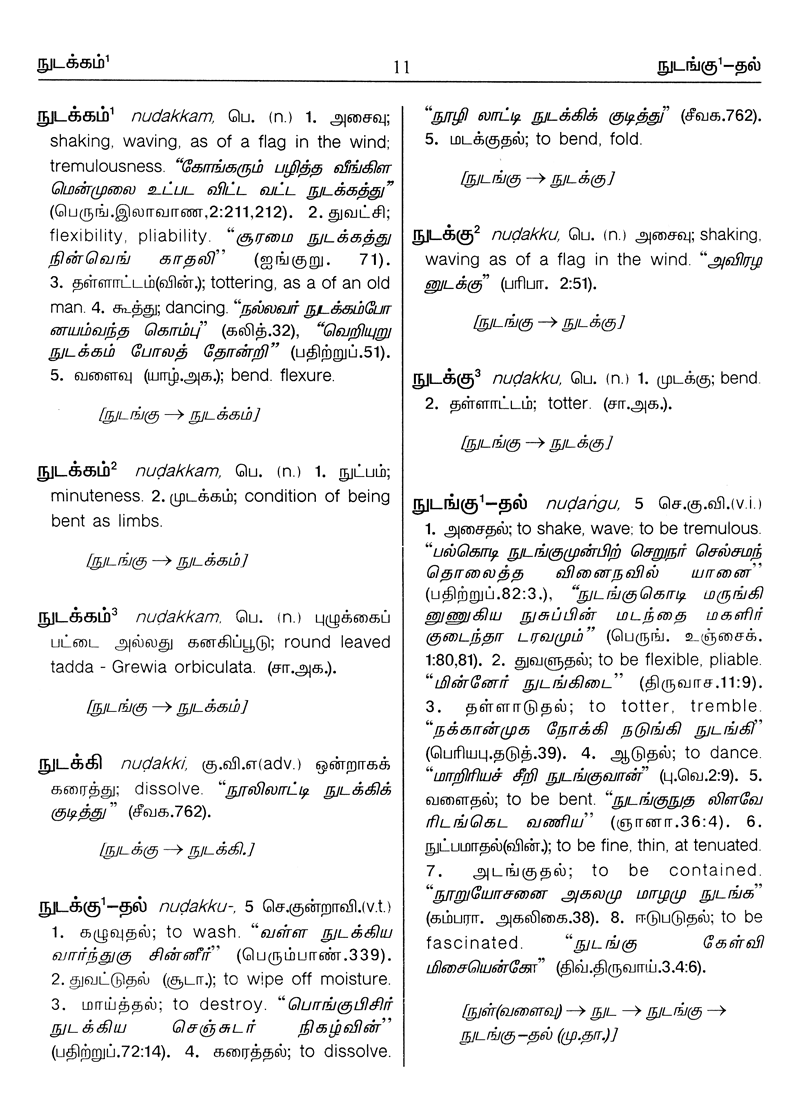 நுடக்கம்¹ 11 நுடங்கு¹–தல்
நுடக்கம்¹ nuḍakkam, பெ. (n.) 1. அசைவு;
shaking, waving, as of a flag in the wind;
tremulousness. “கோங்கரும் பழித்த வீங்கிள
மென்முலை உட்பட விட்ட வட்ட நுடக்கத்து”
(பெருங்.இலாவாண,2:211,212). 2. துவட்சி;
flexibility, pliability. “சூரமை நுடக்கத்து
நின்வெங் காதலி” (ஐங்குறு. 71).
3. தள்ளாட்டம்(வின்.); tottering, as a of an old
man. 4. கூத்து; dancing. “நல்லவர் நுடக்கம்போ
னயம்வந்த கொம்பு” (கலித்.32), “வெறியுறு
நுடக்கம் போலத் தோன்றி” (பதிற்றுப்.51).
5. வளைவு (யாழ்.அக.); bend. flexure.
[நுடங்கு → நுடக்கம்]
நுடக்கம்² nuḍakkam, பெ. (n.) 1. நுட்பம்;
minuteness. 2. முடக்கம்; condition of being
bent as limbs.
[நுடங்கு → நுடக்கம்]
நுடக்கம்³ nuḍakkam, பெ. (n.) புழுக்கைப்
பட்டை அல்லது கனகிப்பூடு; round leaved
tadda - Grewia orbiculata. (சா.அக.).
[நுடங்கு → நுடக்கம்]
நுடக்கி nuḍakki, கு.வி.எ(adv.) ஒன்றாகக்
கரைத்து; dissolve. “நூலிலாட்டி நுடக்கிக்
குடித்து ” (சீவக.762).
[நுடக்கு → நுடக்கி.]
நுடக்கு¹–தல் nuḍakku-, 5 செ.குன்றாவி.(v.t.)
1. கழுவுதல்; to wash. “வள்ள நுடக்கிய
வார்ந்துகு சின்னீர்” (பெரும்பாண்.339).
2. துவட்டுதல் (சூடா.); to wipe off moisture.
3. மாய்த்தல்; to destroy. “பொங்குபிசிர்
நுடக்கிய செஞ்சுடர் நிகழ்வின்”
(பதிற்றுப்.72:14). 4. கரைத்தல்; to dissolve.
“நூழி லாட்டி நுடக்கிக் குடித்து” (சீவக.762).
5. மடக்குதல்; to bend, fold.
[நுடங்கு → நுடக்கு]
நுடக்கு² nuḍakku, பெ. (n.) அசைவு; shaking,
waving as of a flag in the wind. “அவிரழ
னுடக்கு” (பரிபா. 2:51).
[நுடங்கு → நுடக்கு]
நுடக்கு³ nuḍakku, பெ. (n.) 1. முடக்கு; bend.
2. தள்ளாட்டம்; totter. (சா.அக.).
[நுடங்கு → நுடக்கு]
நுடங்கு¹–தல் nuḍaṅgu, 5 செ.கு.வி.(v.i.)
1. அசைதல்; to shake, wave; to be tremulous.
“பல்கொடி நுடங்குமுன்பிற் செறுநர் செல்சமந்
தொலைத்த வினைநவில் யானை”
(பதிற்றுப்.82:3.), “நுடங்குகொடி மருங்கி
னுணுகிய நுசுப்பின் மடந்தை மகளிர்
குடைந்தா டரவமும்” (பெருங். உஞ்சைக்.
1:80,81). 2. துவளுதல்; to be flexible, pliable.
“மின்னேர் நுடங்கிடை” (திருவாச.11:9).
3. தள்ளாடுதல்; to totter, tremble.
“நக்கான்முக நோக்கி நடுங்கி நுடங்கி”
(பெரியபு.தடுத்.39). 4. ஆடுதல்; to dance.
“மாறிரியச் சீறி நுடங்குவான்” (பு.வெ.2:9). 5.
வளைதல்; to be bent. “நுடங்குநுத லிளவே
ரிடங்கெட வணிய” (ஞானா.36:4). 6.
நுட்பமாதல்(வின்.); to be fine, thin, at tenuated.
7. அடங்குதல்; to be contained.
“நூறுயோசனை அகலமு மாழமு நுடங்க”
(கம்பரா. அகலிகை.38). 8. ஈடுபடுதல்; to be
fascinated. “நுடங்கு கேள்வி
மிசையென்கோ” (திவ்.திருவாய்.3.4:6).
[நுள்(வளைவு) → நுட → நுடங்கு →
நுடங்கு–தல் (மு.தா.)]